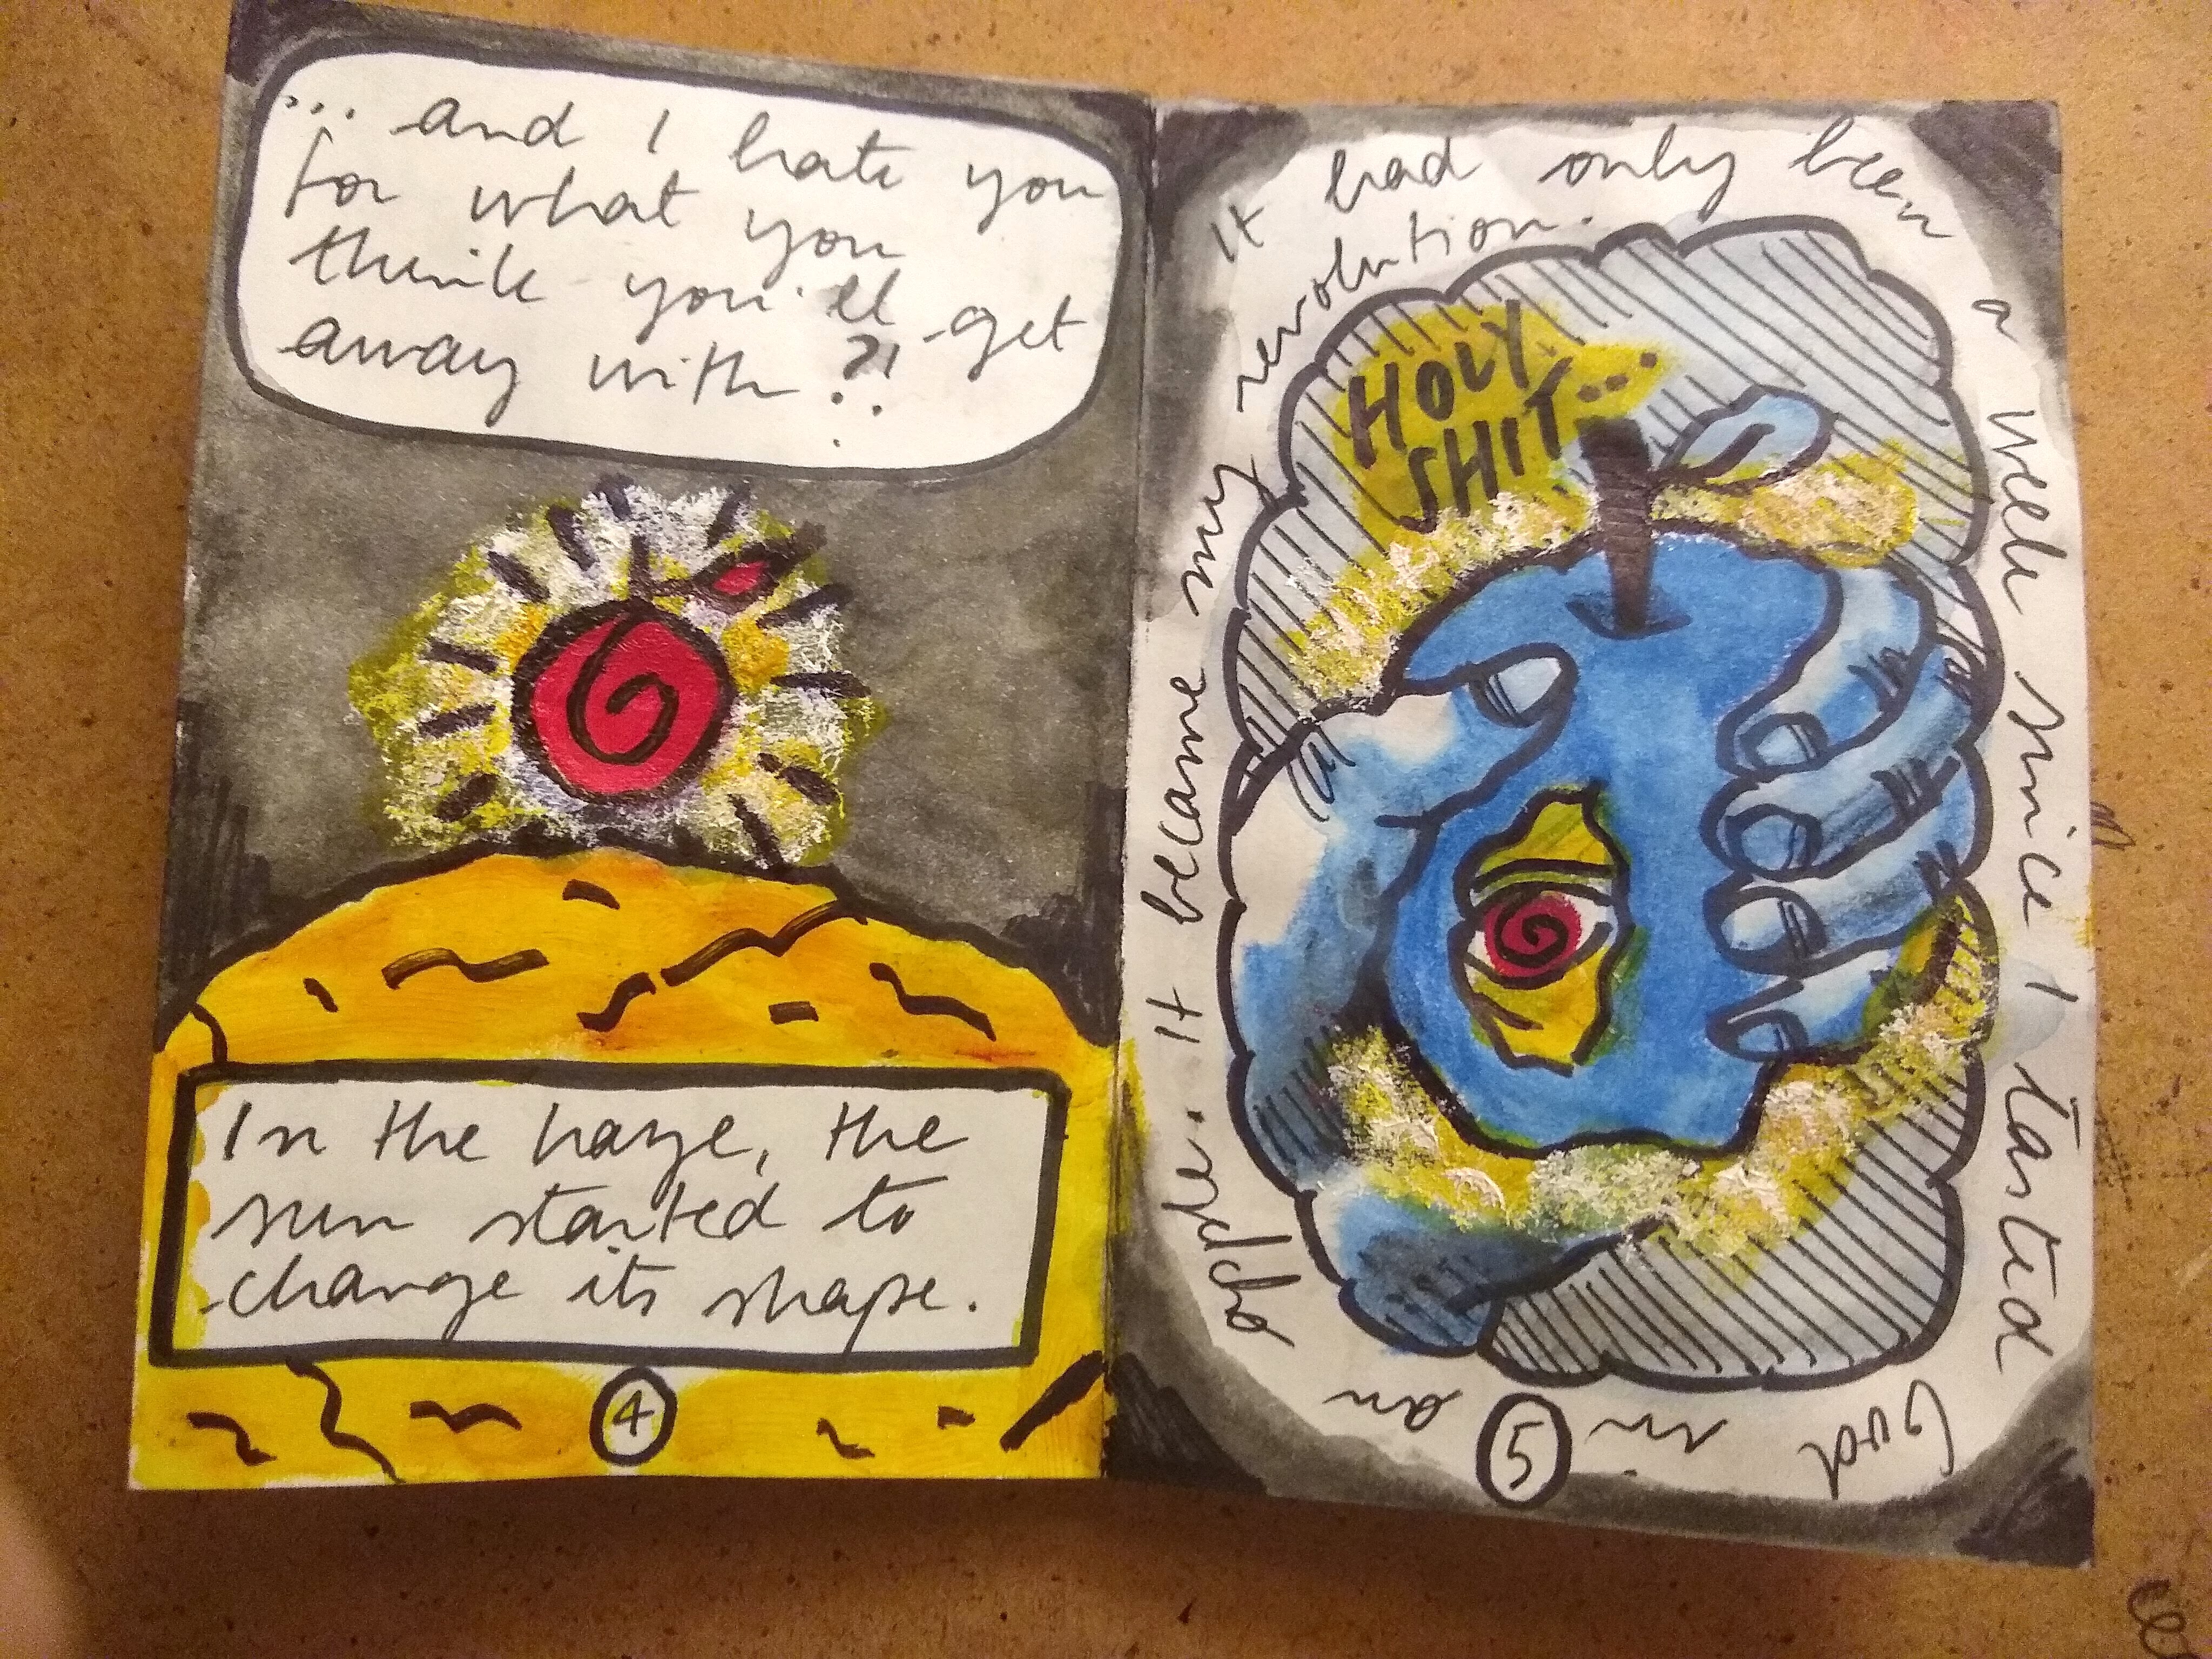 ... and I hate you
for what you
think you'll get
away with?!
In the haze, the
sun started to
change its shape.
4
It had only been
a week since I tasted
God in an
apple. It became my
revolution.
HOLY
SHIT...
5